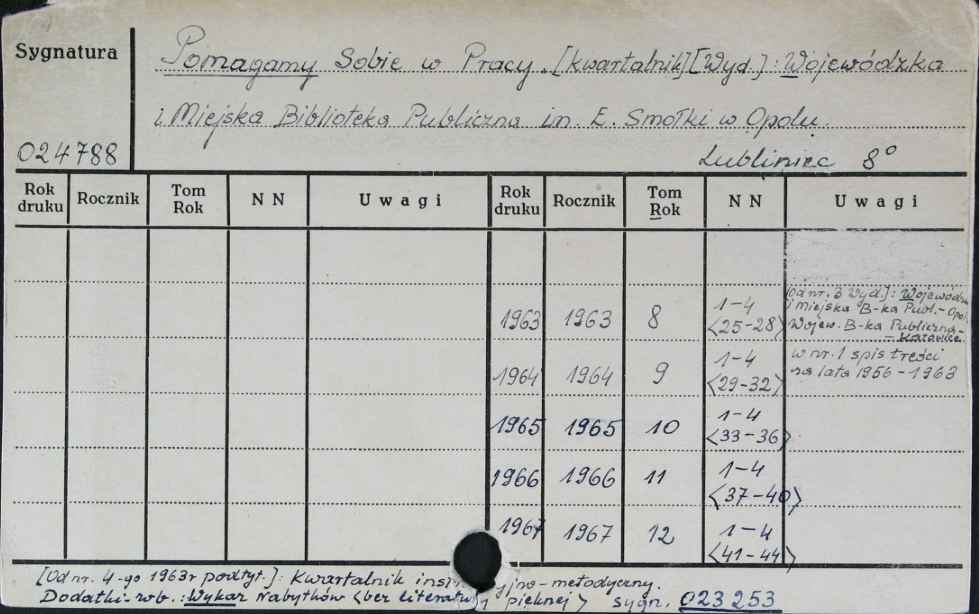 Sygnatura
Pomagamy Sobie w Pracy. [kwartalnik] [Wyd.]: Wojewódzka
i Miejska Biblioteka Publiczna im. E. Smołki w Opolu.
024788
Lubliniec 8°
Rok druku Rocznik Tom Rok NN Uwagi Rok druku Rocznik Tom Rok NN Uwagi
1963 1963 8 1-4 <25-28> [Od nr. 3 Wyd.]: Wojewódz.
i Miejska B-ka Publ.-Opol
Wojew. B-ka Publiczna-
- Katowice
1964 1964 9 1-4 <29-32> w nr. 1 spis treści
na lata 1956-1963
1965 1965 10 1-4 <33-36>
1966 1966 11 1-4 <37-40>
1967 1967 12 1-4 <41-44>
[Od nr. 4-go 1963r podtyt.]: Kwartalnik metodyczny.
Dodatki: Wykaz nabytków <bez pięknej> sygn. 023253